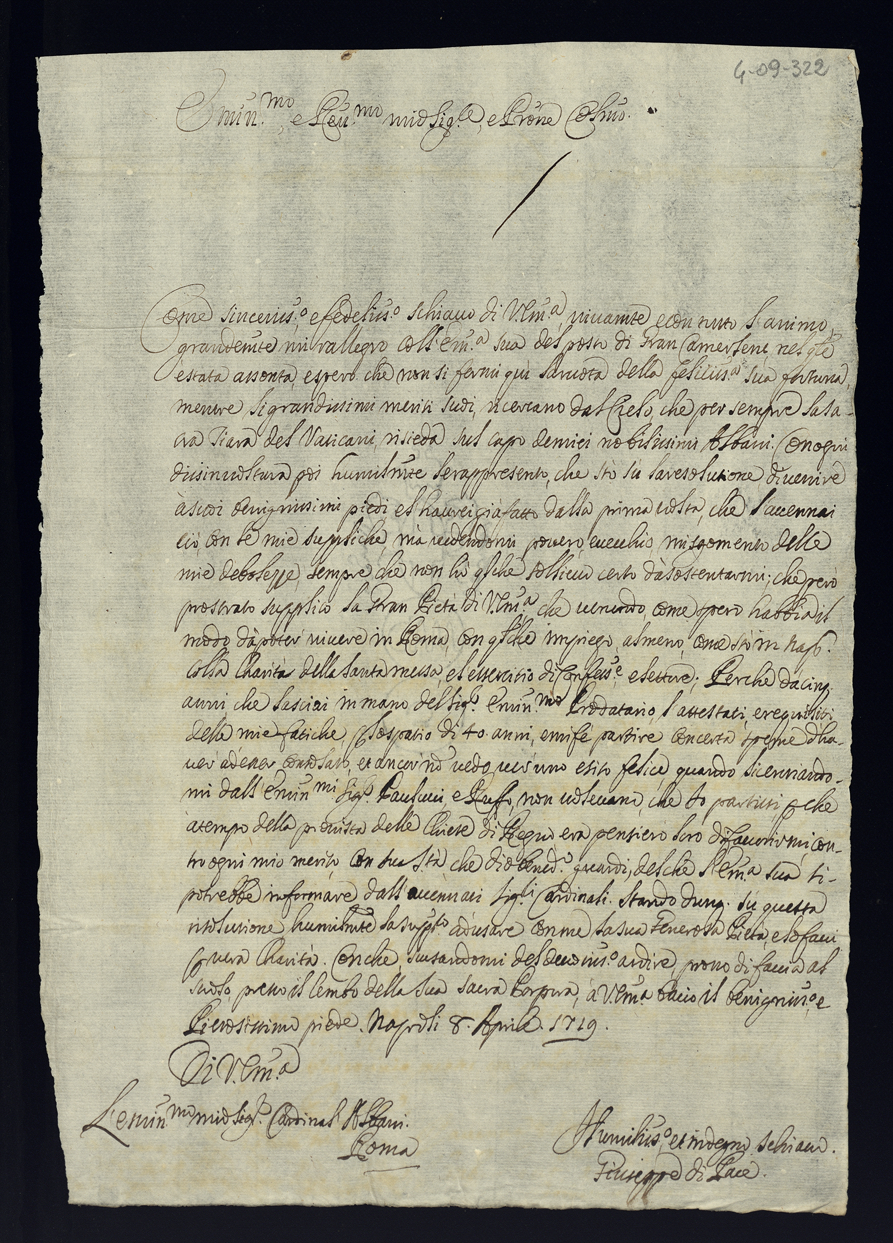 4-09-322
Emin.mo, e Reu.mo mio Sig.re, e Prone Colmo.
Come sincerius.o e fedelius.o schiauo di V. Em.a, viuamte e con tutto l'animo,
grandemte mi rallegro coll'Em.a sua del posto di Gran Camerlene, nel qle
è stata assonta e spero che non si fermi qui la ruota della felicius.a sua fortuna,
mentre li grandissimi meriti suoi, ricercano dal Cielo, che per sempre la sa-
cra Tiara del Vaticani, risieda sul capo de miei nobilissimi Albani. Con ogni
disinuoltura poi humilmte le rappresento, che sto sù la resolutione di uenire
à suoi benignissimi piedi et haurei già fatto dalla prima uolta, che l'accennai
ciò con le mie suppliche, mà uedendomi pouero, e uecchio, mi sgomento delle
mie debolezze, sempre che non hò qlche sollieuo certo dà sostentarmi; che però
prostrato supplico la Gran Pietà di V. Em.a che uenendo come spero habbia il
modo dà poter uiuere in Roma, con qlche impiego, almeno, come stò in Nap.
colla Charità della Santa messa, et essercitio di Confess.e e letture; Perche da cinq.
anni che lasciai in mano del Sig.r Emin.mo Prodatario, l'attestati, e requisiti
delle mie fatiche, p lo spatio di 40 anni, e mi fè partire con certa speme d'ha-
uer ad esser consolato, et ancor nō uedo ueruno esito felice, quando licentiando-
mi dall'Emin.mi Sig.ri Paulucci, e Ruffo, non uoleuano, che Io partissi p che
à tempo della prouista delle Chiese di Regno era pensiero loro di fauorirmi, con-
tro ogni mio merito, con sua S.tà che dio bened.o guardi, del che l'Em.a sua si
potrebbe informare dall'accennati Sig.ri Cardinali. Stando dunq. sù questa
risolutione humilmte la suppl.co ad usare con me la sua Generosa Pietà, e lo facci
p uera Charità. Con che, scusandomi del deuotius.o ardire, prono di faccia al
suolo, presso il lembo della sua sacra Porpora, à V. Em.a bacio il benignius.o e
Pietosissimo piede. Napoli 8. Aprile. 1719.
Di V. Em.a
L'emin.mo mio Sig.r Cardinal Albani.
Roma
Humilius.o et indegno schiauo.
Giuseppe di Pace.